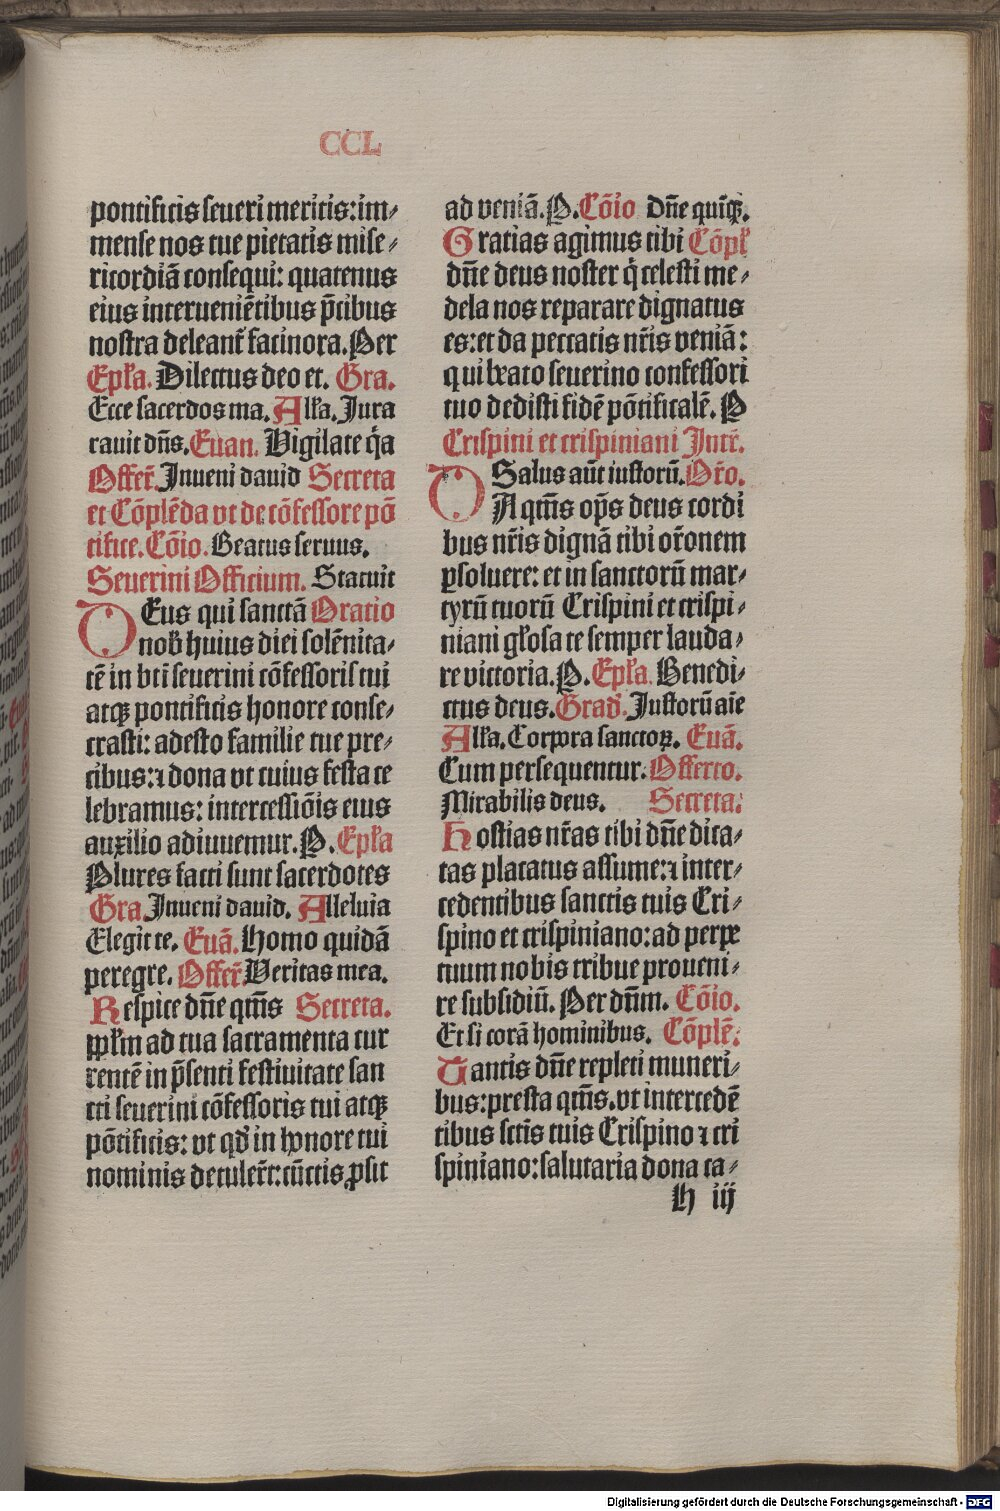 CCL
pontificis seueri meritis: im⸗
mense nos tue pietatis mise⸗
ricordiã consequi: quatenus
eius interueniẽtibus p̃cibus
nostra deleant᷑ facinora. Per
Ep̃la. Dilectus deo et. Gra.
Ecce sacerdos ma. Alľa. Jura
rauit dñs. Euan. Vigilate q̃a
Offer̃ Jnueni dauid Secreta
et Cõplẽda vt de cõfessore põ
tifice. Cõio. Beatus seruus.
Seuerini Officium. Statuit
DEus qui sanctã Oratio
nob̃ huius diei solẽnita⸗
tẽ in bt̃i seuerini cõfessoris tui
atqꝫ pontificis honore conse⸗
crasti: adesto familie tue pre⸗
cibus: ⁊ dona vt cuius festa ce
lebramus: intercessiõis eius
auxilio adiuuemur. P. Ep̃la
Plures facti sunt sacerdotes
Gra. Jnueni dauid. Alleluia
Elegit te. Euã. Homo quidã
peregre. Offer̃. Veritas mea.
Respice dñe qm̃s Secreta.
pp̃lm ad tua sacramenta cur
rentẽ in p̃senti festiuitate san
cti seuerini cõfessoris tui atqꝫ
põtificis: vt qď in honore tui
nominis detuleŕt: cũctis ꝓsit
ad veniã. P. Cõio Dñe quĩqꝫ.
Gratias agimus tibi Cõpľ
dñe deus noster q̇ celesti me⸗
dela nos reparare dignatus
es: et da peccatis nr̃is veniã:
qui beato seuerino confessori
tuo dedisti fidẽ põtificalẽ. P
Crispini et crispiniani Jntr̃.
Salus aũt iustorũ. Or̃o.
DA qm̃s op̃s deus cordi
bus nr̃is dignã tibi or̃onem
ꝑsoluere: et in sanctorũ mar⸗
tyrũ tuorũ Crispini et crispi⸗
niani gľosa te semper lauda⸗
re victoria. P. Ep̃la. Benedi⸗
ctus deus. Grad̃. Justorũ aĩe
Alľa. Corpora sanctoꝝ. Euã.
Cum persequentur. Offerto.
Mirabilis deus. Secreta:
Hostias nr̃as tibi dñe dica⸗
tas placatus assume: ⁊ inter⸗
cedentibus sanctis tuis Cri⸗
spino et crispiniano: ad perpe
tuum nobis tribue proueni⸗
re subsidiũ. Per dñm. Cõio.
Et si corã hominibus. Cõplẽ:
Tantis dñe repleti muneri⸗
bus: presta qm̃s. vt intercedẽ
tibus sctis tuis Crispino ⁊ cri
spiniano: salutaria dona ca⸗
h iij
Digitalisierung gefördert durch die Deutsche Forschungsgemeinschaft - DFG